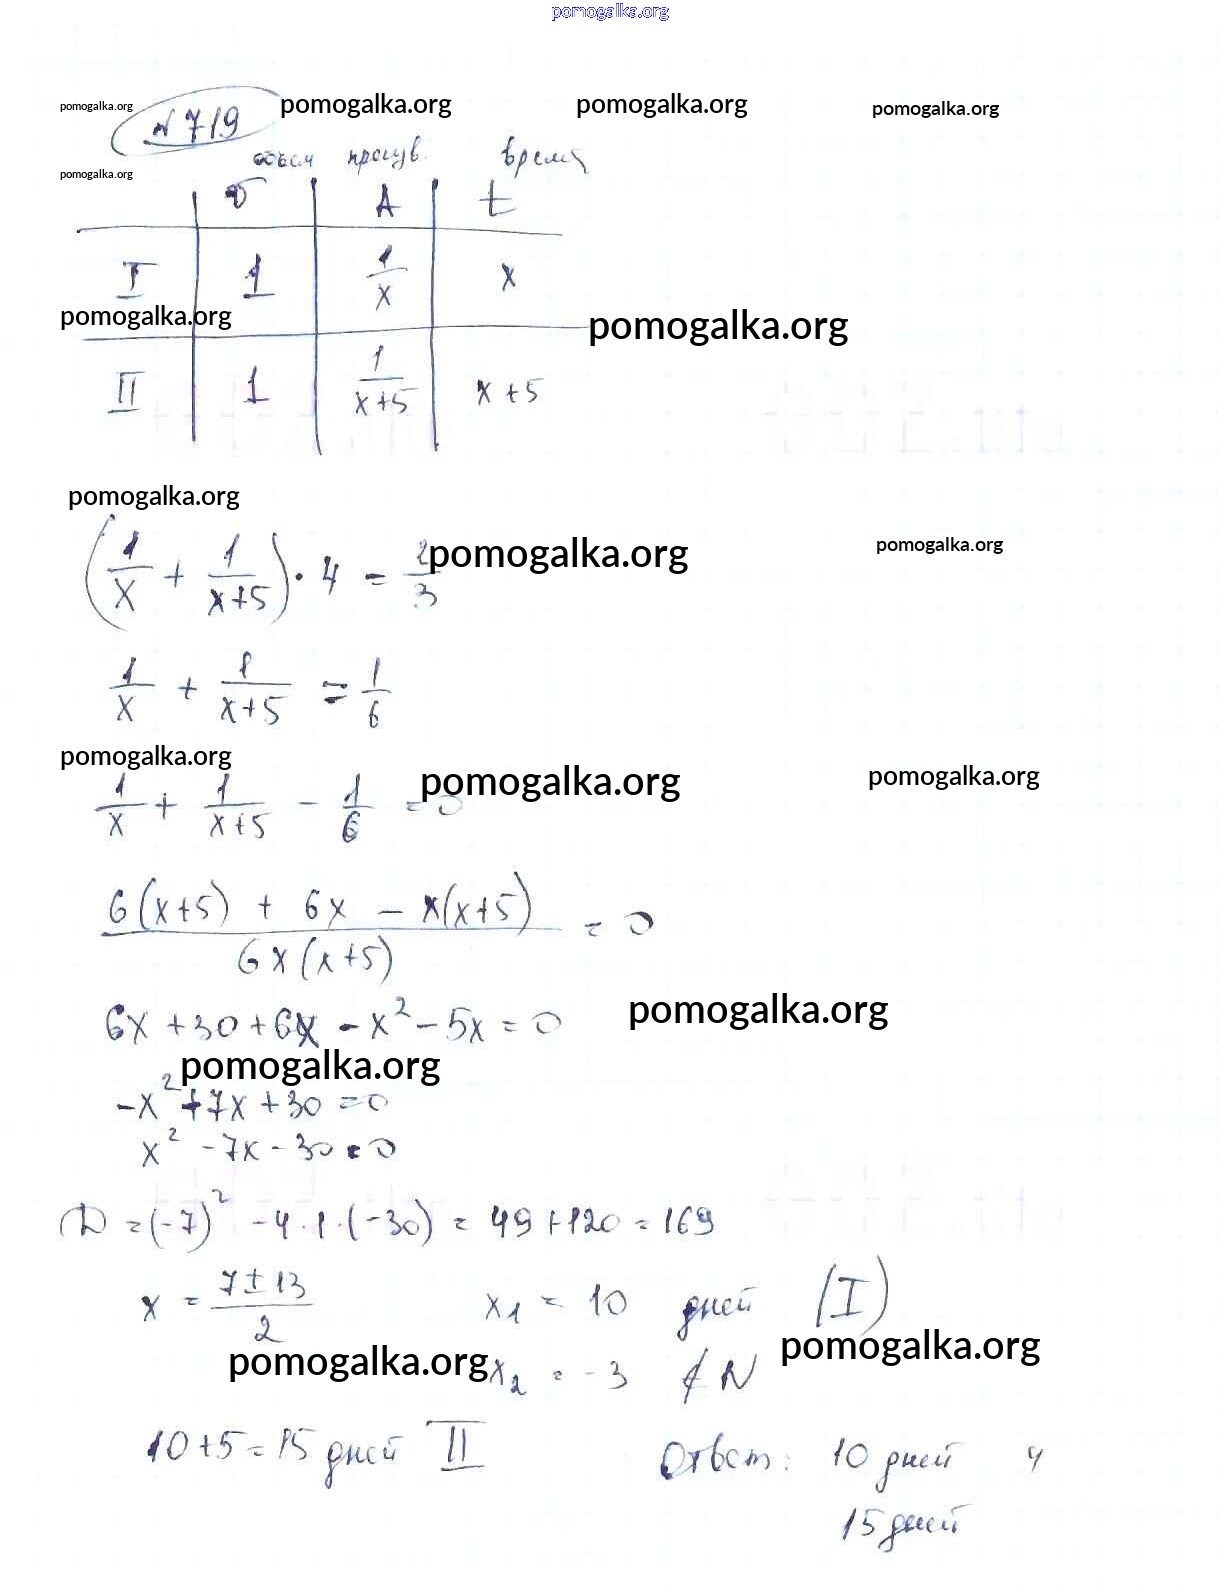 pomogalka.org
pomogalka.org pomogalka.org pomogalka.org pomogalka.org
№ 719
объем время
pomogalka.org
v A t
I 1 1/x x
pomogalka.org pomogalka.org
II 1 1/(x+5) x+5
pomogalka.org
pomogalka.org pomogalka.org
(1/x + 1/(x+5)) · 4 = 2/3
1/x + 1/(x+5) = 1/6
pomogalka.org pomogalka.org pomogalka.org
1/x + 1/(x+5) - 1/6 = 0
(6(x+5) + 6x - x(x+5))/(6x(x+5)) = 0
pomogalka.org
6x + 30 + 6x - x² - 5x = 0
pomogalka.org
-x² + 7x + 30 = 0
x² - 7x - 30 = 0
D = (-7)² - 4·1·(-30) = 49 + 120 = 169
x = (7 ± 13)/2 x₁ = 10 дней (I)
pomogalka.org pomogalka.org
x₂ = -3 ∉ N
10 + 5 = 15 дней II Ответ: 10 дней и
15 дней